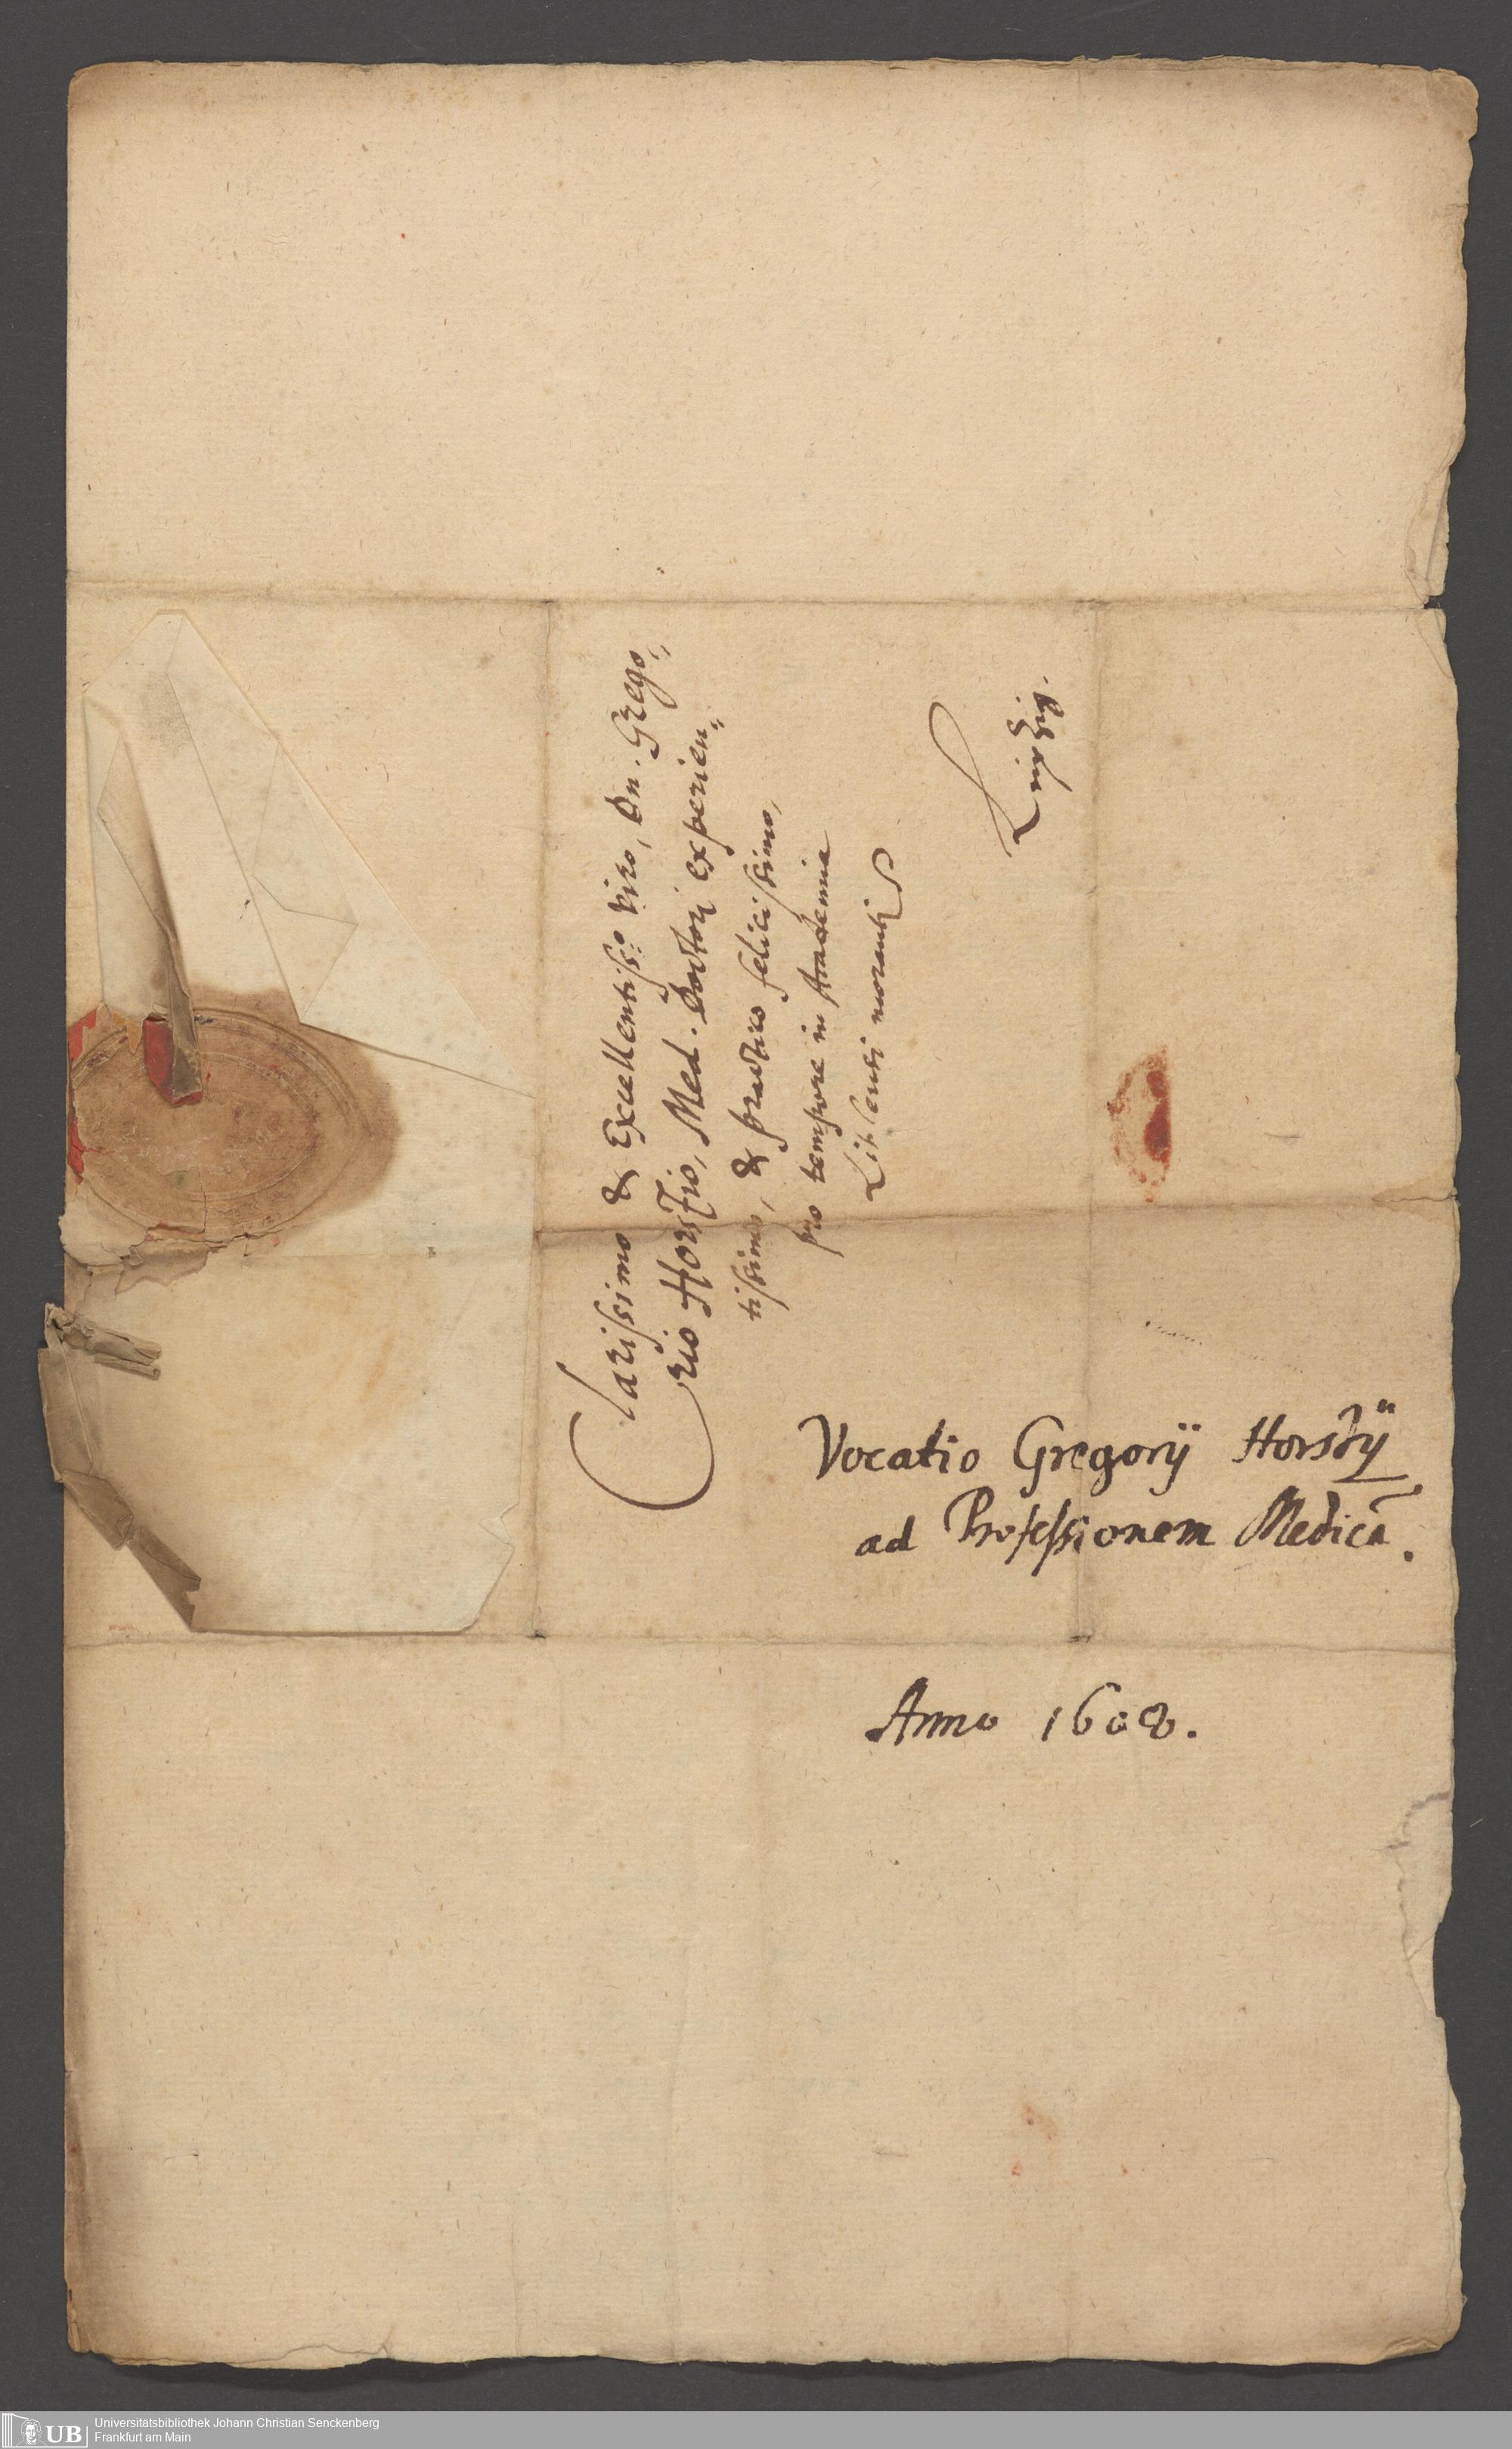 Clarissimo & Excellentiss:o Viro, Dn. Grego„
rio Horstio, Med. Doctori experien„
tissimo, & practico felicissimo,
pro tempore in Academia
Lipsensi moranti
Leipzig.
Vocatio Gregorij Horstij
ad Professionem Medicā.
Anno 1608.
UB
Universitätsbibliothek Johann Christian Senckenberg
Frankfurt am Main